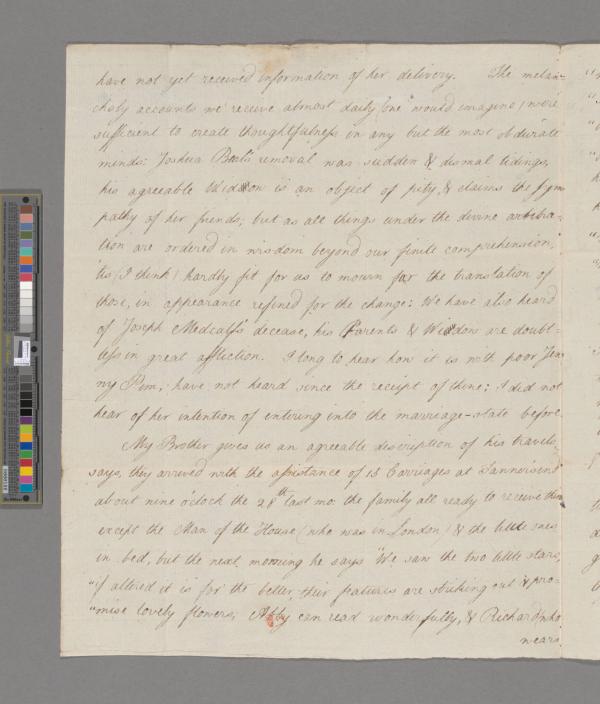 have not yet received information of her delivery. The melan-
choly accounts we receive almost daily (one would imagine) were
sufficient to create thoughtfulness in any but the most obdurate
minds: Joshua Beale's removal was sudden & dismal tidings,
his agreeable Widow is an object of pity, & claims the sym
pathy of her friends; but as all things under the divine
tion are ordered in wisdom beyond our finite comprehension,
'tis (I think) hardly fit for us to mourn for the translation of
those, in appearance refined for the change: We have also heard
of Joseph Medcalf's decease, his Parents & Widow are doubt-
less in great affliction. I long to hear how it is with poor Jen
ny Pim, have not heard since the receipt of thine; I did not
hear of her intention of entering into the marriage-state before.
My Brother gives us an agreeable description of his travels,
says, they arrived with the assistance of 15 Carriages at
about nine o'clock the 28th last mo: the family all ready to receive them
except the Man of the House (who was in London) & the little ones
in bed, but the next morning he says "We saw the two little stars,
"if altered it is for the better, their features are striking out & pro-
"mise lovely flowers, Abby can read wonderfully, & Richard, who
wears